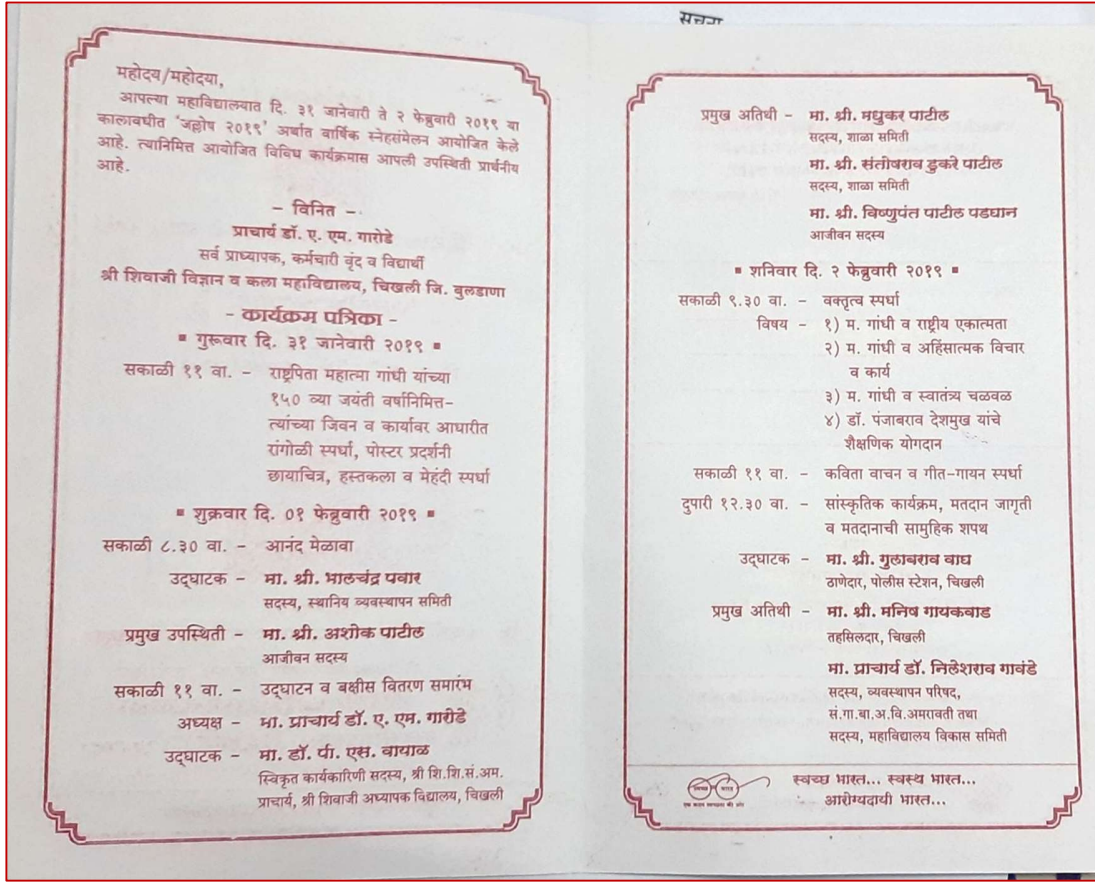 सूचना
महोदय/महोदया,
आपल्या महाविद्यालयात दि. ३१ जानेवारी ते २ फेब्रुवारी २०१९ या
कालावधीत 'जल्लोष २०१९' अर्थात वार्षिक स्नेहसंमेलन आयोजित केले
आहे. त्यानिमित्त आयोजित विविध कार्यक्रमास आपली उपस्थिती प्रार्थनीय
आहे.
– विनित –
प्राचार्य डॉ. ए. एम. गारोडे
सर्व प्राध्यापक, कर्मचारी वृंद व विद्यार्थी
श्री शिवाजी विज्ञान व कला महाविद्यालय, चिखली जि. बुलडाणा
- कार्यक्रम पत्रिका -
▪ गुरूवार दि. ३१ जानेवारी २०१९ ▪
सकाळी ११ वा. – राष्ट्रपिता महात्मा गांधी यांच्या
१५० व्या जयंती वर्षानिमित्त–
त्यांच्या जिवन व कार्यावर आधारीत
रांगोळी स्पर्धा, पोस्टर प्रदर्शनी
छायाचित्र, हस्तकला व मेहंदी स्पर्धा
▪ शुक्रवार दि. ०१ फेब्रुवारी २०१९ ▪
सकाळी ८.३० वा. – आनंद मेळावा
उद्घाटक – मा. श्री. भालचंद्र पवार
सदस्य, स्थानिय व्यवस्थापन समिती
प्रमुख उपस्थिती – मा. श्री. अशोक पाटील
आजीवन सदस्य
सकाळी ११ वा. – उद्घाटन व बक्षीस वितरण समारंभ
अध्यक्ष – मा. प्राचार्य डॉ. ए. एम. गारोडे
उद्घाटक – मा. डॉ. पी. एस. वायाळ
स्विकृत कार्यकारिणी सदस्य, श्री शि.शि.सं.अम.
प्राचार्य, श्री शिवाजी अध्यापक विद्यालय, चिखली
प्रमुख अतिथी – मा. श्री. मधुकर पाटील
सदस्य, शाळा समिती
मा. श्री. संतोषराव डुकरे पाटील
सदस्य, शाळा समिती
मा. श्री. विष्णुपंत पाटील पडघान
आजीवन सदस्य
▪ शनिवार दि. २ फेब्रुवारी २०१९ ▪
सकाळी ९.३० वा. – वक्तृत्व स्पर्धा
विषय – १) म. गांधी व राष्ट्रीय एकात्मता
२) म. गांधी व अहिंसात्मक विचार
व कार्य
३) म. गांधी व स्वातंत्र्य चळवळ
४) डॉ. पंजाबराव देशमुख यांचे
शैक्षणिक योगदान
सकाळी ११ वा. – कविता वाचन व गीत-गायन स्पर्धा
दुपारी १२.३० वा. – सांस्कृतिक कार्यक्रम, मतदान जागृती
व मतदानाची सामुहिक शपथ
उद्घाटक – मा. श्री. गुलाबराव वाघ
ठाणेदार, पोलीस स्टेशन, चिखली
प्रमुख अतिथी – मा. श्री. मनिष गायकवाड
तहसिलदार, चिखली
मा. प्राचार्य डॉ. निलेशराव गावंडे
सदस्य, व्यवस्थापन परिषद,
सं.गा.बा.अ.वि.अमरावती तथा
सदस्य, महाविद्यालय विकास समिती
स्वच्छ भारत
एक कदम स्वच्छता की ओर
स्वच्छ भारत... स्वस्थ भारत...
आरोग्यदायी भारत...